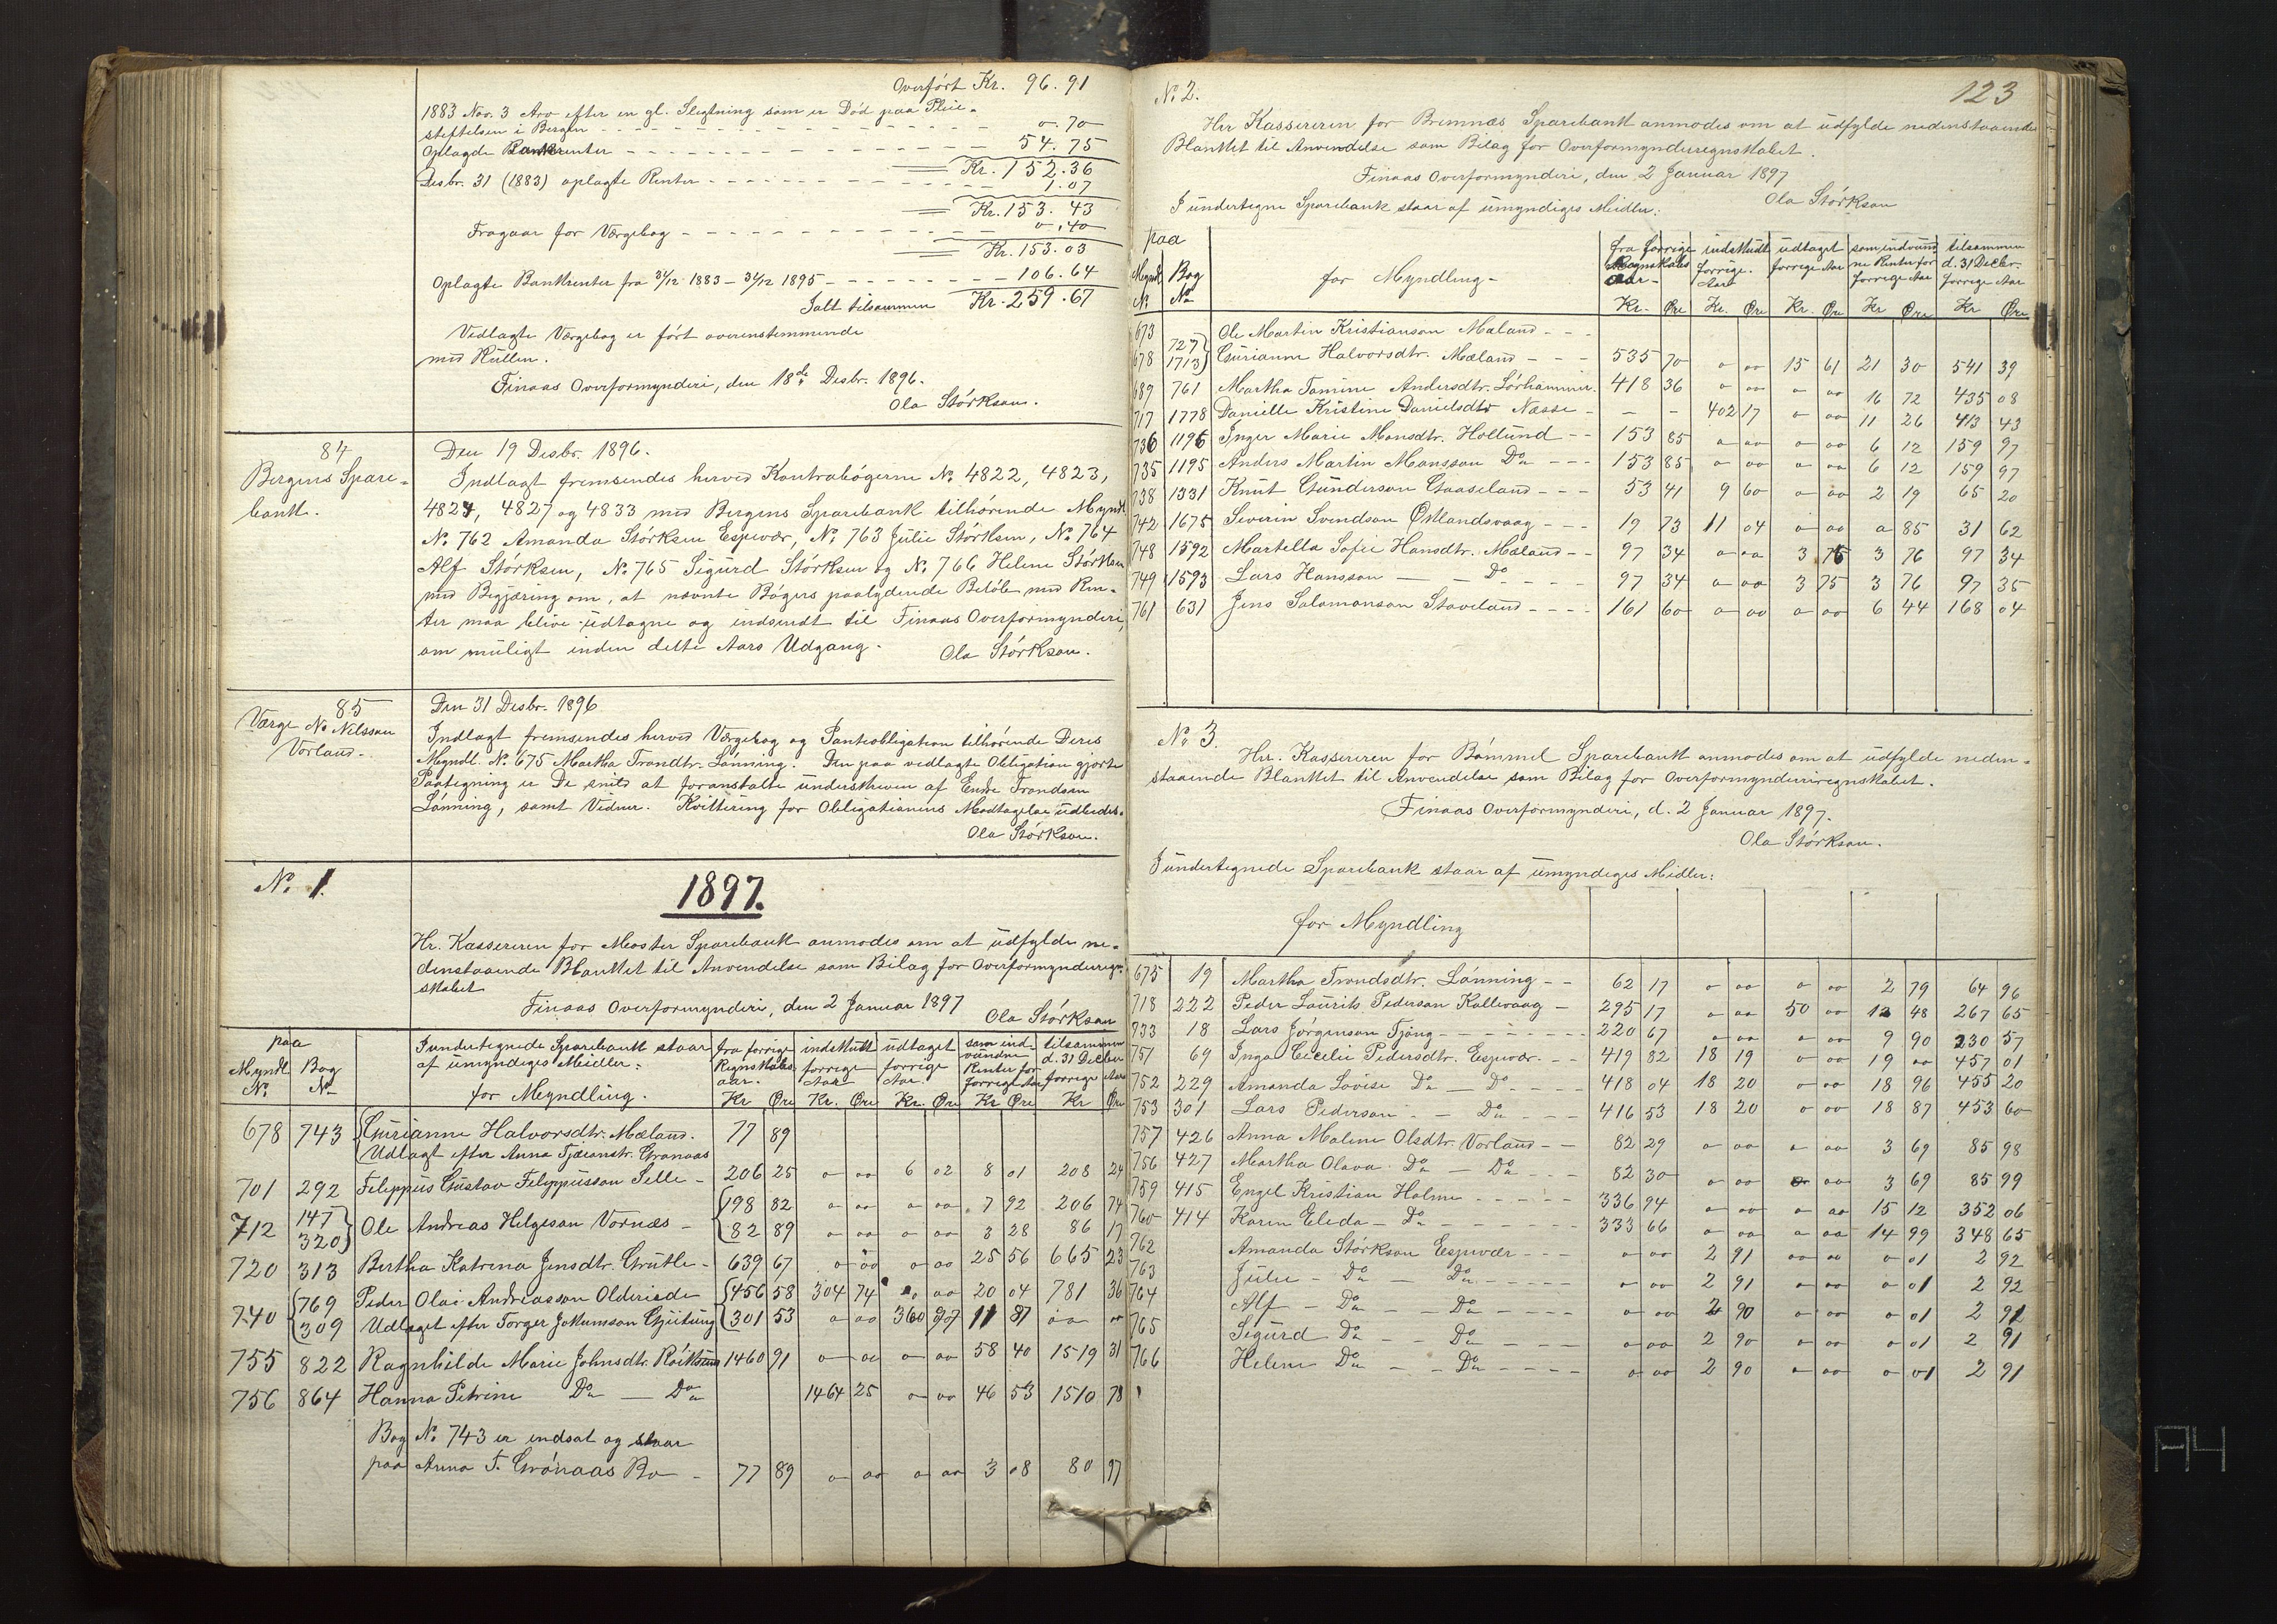 Overført Kr. 96.91
1883 Nov. 3 Arv efter en gl. Slegtning som er Død paa Pleie-
stiftelsen i Bergen - - - 0.70
Oplagde Bankrenter - - - 54.75
Kr. 152.36
Desbr. 31 (1883) oplagte Renter - - - 1.07
Kr. 153.43
Fragaar for Værgebog - - - 0.40
Kr. 153.03
Oplagte Bankrenter fra 31/12 1883 - 31/12 1895 - - - 106.64
Ialt tilsammen Kr. 259.67
Vedlagte Værgebog er ført overenstemmende
med Rullen.
Finaas Overformynderi, den 18de Desbr. 1896.
Ola Størkson.
84
Bergens Spare-
bank.
Den 19 Desbr. 1896.
Indlagt fremsendes herved Kontrabøgerne No. 4822, 4823,
4824, 4827 og 4833 med Bergens Sparebank tilhørende Myndl.
No. 762 Amanda Størksen Espevær, No. 763 Julie Størksen, No. 764
Alf Størksen, No. 765 Sigurd Størksen og No. 766 Helene Størksen
med Begjæring om, at nævnte Bøgers paalydende Beløb med Ren-
ter maa blive udtagne og indsendt til Finaas Overformynderi,
om muligt inden dette Aars Udgang.
Ola Størkson.
85
Værge N. Nilssen
Vorland.
Den 31 Desbr. 1896
Indlagt fremsendes herved Værgebog og Panteobligation tilhørende Deres
Myndl. No. 675 Martha Trondtr. Lønning. Den paa vedlagte Obligation gjorte
Paategning er De snild at foranstalte underskreven af Endre Trondsen
Lønning, samt Vidner. Kvittering for Obligationens Modtagelse udbedes.
Ola Størkson.
No. 1.
1897.
Hr. Kassereren for Moster Sparebank anmodes om at udfylde ne-
denstaaende Blanket til Anvendelse som Bilag for Overformynderregn-
skabet
Finaas Overformynderi, den 2 Januar 1897
Ola Størkson
paa Myndl. No. Bog No. I undertegnede Sparebank staar af umyndiges Midler: for Myndling. fra forrige Regnskabs aar. Kr Øre indskudt forrige Aar Kr. Øre udtaget forrige Aar. Kr. Øre som ind-vundne Renter for forrige Aar Kr Øre tilsammen d. 31 Decbr forrige Aar Kr Øre
678 743 Gurianne Halvorsdtr. Mæland. 77 89
Udlagt efter Anna Tjæranstr. Grønaas
701 292 Filippus Gustav Filippusson Selle - 206 25 0 00 6 02 8 01 208 24
712 147 Ole Andreas Helgeson Vornæs - 198 82 0 00 0 00 7 92 206 74
320 82 89 0 00 0 00 3 28 86 17
720 313 Bertha Katrina Jensdtr. Grutle - 639 67 0 00 0 00 25 56 665 23
740 769 Peder Olai Andreasson Oldereide 456 58 304 74 0 00 20 04 781 36
309 Udlaget efter Torger Jokumson Gjeitung 301 53 0 00 360 90 11 87
755 822 Ragnhilde Marie Johnsdtr. Røiksund 1460 91 0 00 0 00 58 40 1519 31
756 864 Hanna Petrine Do — Do 1464 25 0 00 46 53 1510 78
Bog No. 743 er indsat og staar
paa Anna T. Grønaas Bo - 77 89 0 00 0 00 3 08 80 97
No. 2. 123
Herr Kassereren for Bremnæs Sparebank anmodes om at udfylde nedenstaaende
Blanket til Anvendelse som Bilag for Overformynderregnskabet.
Finaas Overformynderi, den 2 Januar 1897
Ola Størkson
I undertegne Sparebank staar af umyndiges Midler:
paa Myndl. No. Bog No. for Myndling - fra forrige Regnskabs aar - Kr. Øre indskudt forrige Aar Kr. Øre udtaget forrige Aar Kr. Øre som indvund-ne Renter for forrige Aar Kr Øre tilsammen d. 31 Decbr. forrige Aar Kr Øre
673 727 Ole Martin Kristianson Mæland - -
678 1713 Gurianne Halvorsdtr. Mæland - - - 535 70 0 00 15 61 21 30 541 39
689 761 Martha Tomine Andersdtr. Lørhammer. 418 36 0 00 0 00 16 72 435 08
717 1778 Danielle Kristine Danielsdtr Næsse - - - 402 17 0 00 11 26 413 43
736 1196 Inger Marie Monsdtr. Hollund - - 153 85 0 00 0 00 6 12 159 97
735 1195 Anders Martin Monsson Do - - - 153 85 0 00 0 00 6 12 159 97
738 1331 Knut Gunderson Gaaseland - - - 53 41 9 60 0 00 2 19 65 20
742 1675 Severin Svendson Østlandsvaag - - - 19 73 11 04 0 00 0 85 31 62
748 1592 Martella Sofie Hansdtr. Mæland - - 97 34 0 00 3 76 3 76 97 34
749 1593 Lars Hansson — - Do - - - 97 34 0 00 3 75 3 76 97 35
761 631 Jens Salamonson Staveland - - - 161 60 0 00 0 00 6 44 168 04
No. 3.
Hr. Kassereren for Bømmel Sparebank anmodes om at udfylde neden-
staaende Blanket til Anvendelse som Bilag for Overformynderiregnskabet.
Finaas Overformynderi, d. 2 Januar 1897.
Ola Størkson.
I undertegnede Sparebank staar af umyndiges Midler:
for Myndling
675 19 Martha Trondsdtr. Lønning - - 62 17 0 00 0 00 2 79 64 96
718 222 Peder Laurits Pederson Kallevaag - 295 17 0 00 50 00 12 48 267 65
733 18 Lars Jørgenson Tjong - - - 220 67 0 00 0 00 9 90 230 57
751 69 Inga Cecelie Pedersdtr. Espevær. - - 419 82 18 19 0 00 19 00 457 01
752 229 Amanda Lovise Do — Do - - - 418 04 18 20 0 00 18 96 455 20
753 301 Lars Pederson - - Do - - - 416 53 18 20 0 00 18 87 453 60
757 426 Anna Malene Olsdtr. Vorland - - 82 29 0 00 0 00 3 69 85 98
756 427 Martha Olava Do — Do - - 82 30 0 00 0 00 3 69 85 99
759 415 Engel Kristian Holme - - - 336 94 0 00 0 00 15 12 352 06
760 414 Karen Elida - Do - - - 333 66 0 00 0 00 14 99 348 65
762 Amanda Størkson Espevær - - - 0 00 2 91 00 00 0 01 2 92
763 Julie - Do — Do - - - 0 00 2 91 0 00 0 01 2 92
764 Alf - Do - - Do - - - 0 00 2 90 0 00 0 01 2 91
765 Sigurd Do - - Do - - - 0 00 2 90 0 00 0 01 2 91
766 Helene Do - - Do - - - 0 00 2 90 0 00 0 01 2 91